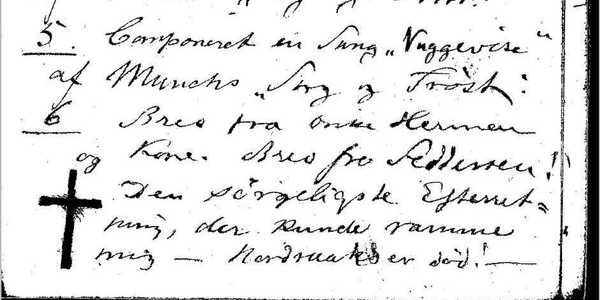 5. Componeret en Sang „Vuggevise“
af Munchs „Sorg og Trøst“.
6 Brev fra onkel Herman
og Kone. Brev fra Feddersen!
Den sörgeligste Efterret=
ning, der kunde ramme
mig — Nordraak er död! —